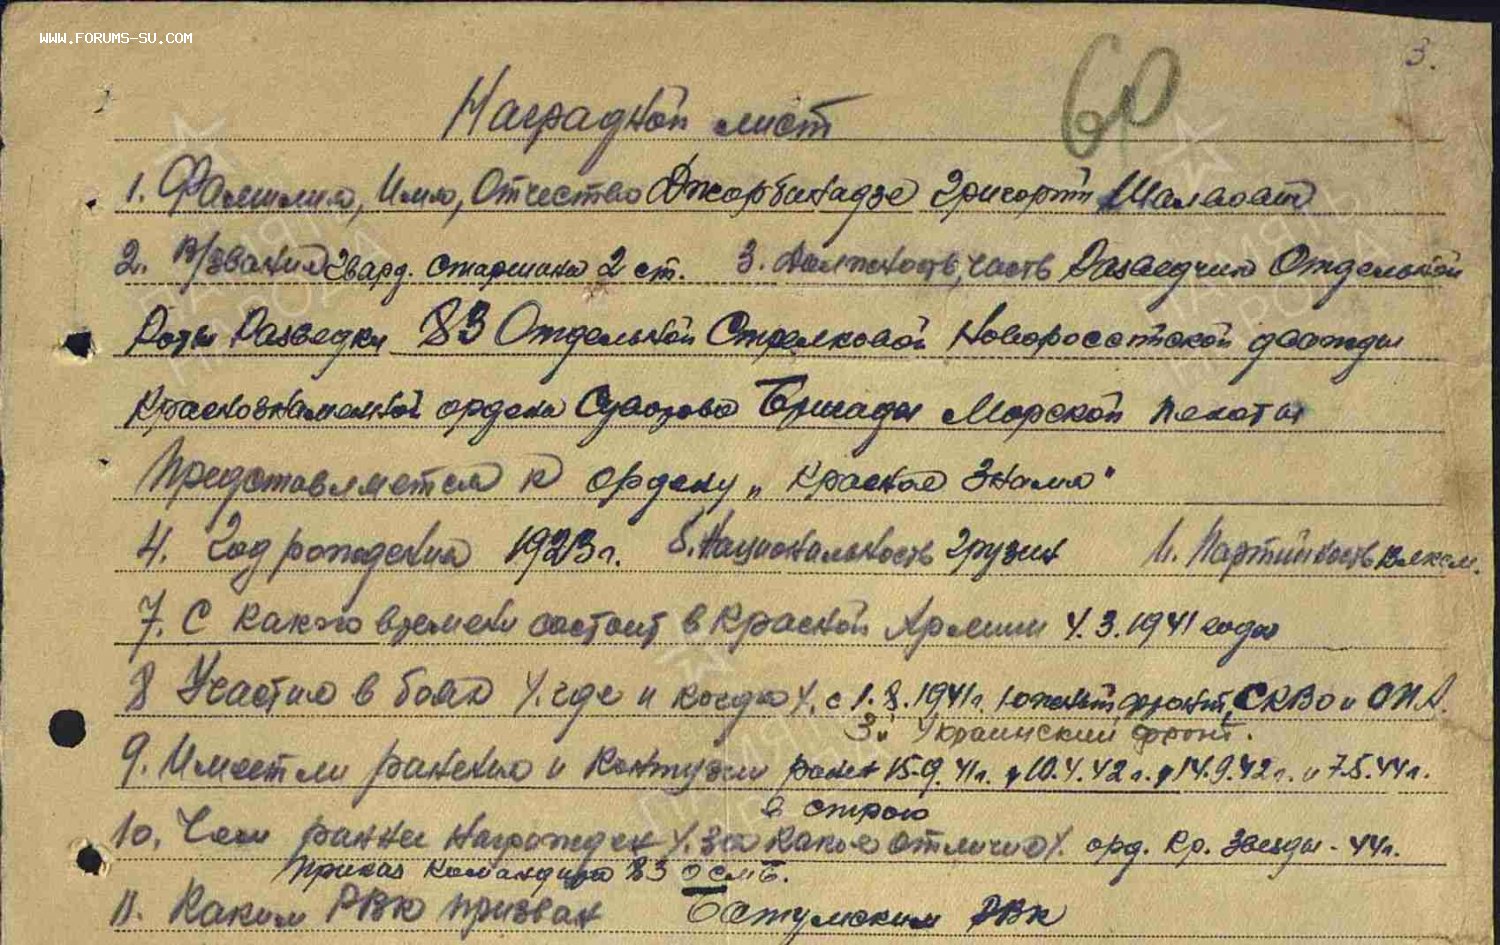 WWW.FORUMS-SU.COM
3.
60
Наградной лист
1. Фамилия, Имя, Отчество Джорбинадзе Григорий Шалвович
2. В/звание Гвард. старшина 2 ст. 3. Должность, часть Разведчик Отдельной
Роты Разведки 83 Отдельной Стрелковой Новороссийской дважды
Краснознаменной ордена Суворова Бригады Морской пехоты
Представляется к ордену "Красное Знамя"
4. Год рождения 1923 г. 5. Национальность Грузин 6. Партийность
7. С какого времени состоит в Красной Армии 4.3.1941 года
8 Участие в боях /. где и когда /. с 1.8.1941г. Южный фронт, СКВО и ОПА.
3й Украинский фронт.
9. Имеет ли ранения и контузии ранен 15.9.41г., 10.4.42г., 14.9.42г. и 7.5.44г.
в строю
10. Чем ранее награжден /. за какое отличие /. орд. Кр. Звезды - 44г.
Приказ командира 83 осмб.
11. Каким РВК призван Батумским РВК
ПАМЯТЬ НАРОДА
ПАМЯТЬ НАРОДА
ПАМЯТЬ НАРОДА